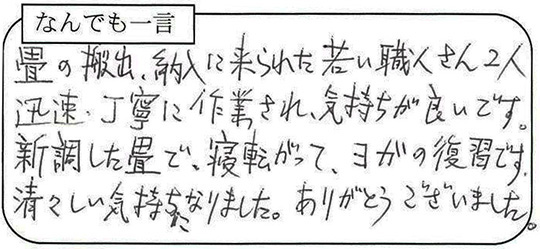 なんでも一言
畳の搬出、納入に来られた若い職人さん2人
迅速・丁寧に作業され、気持ちが良いです。
新調した畳で、寝転がって、ヨガの復習です。
清々しい気持ちになりました。ありがとうございました。